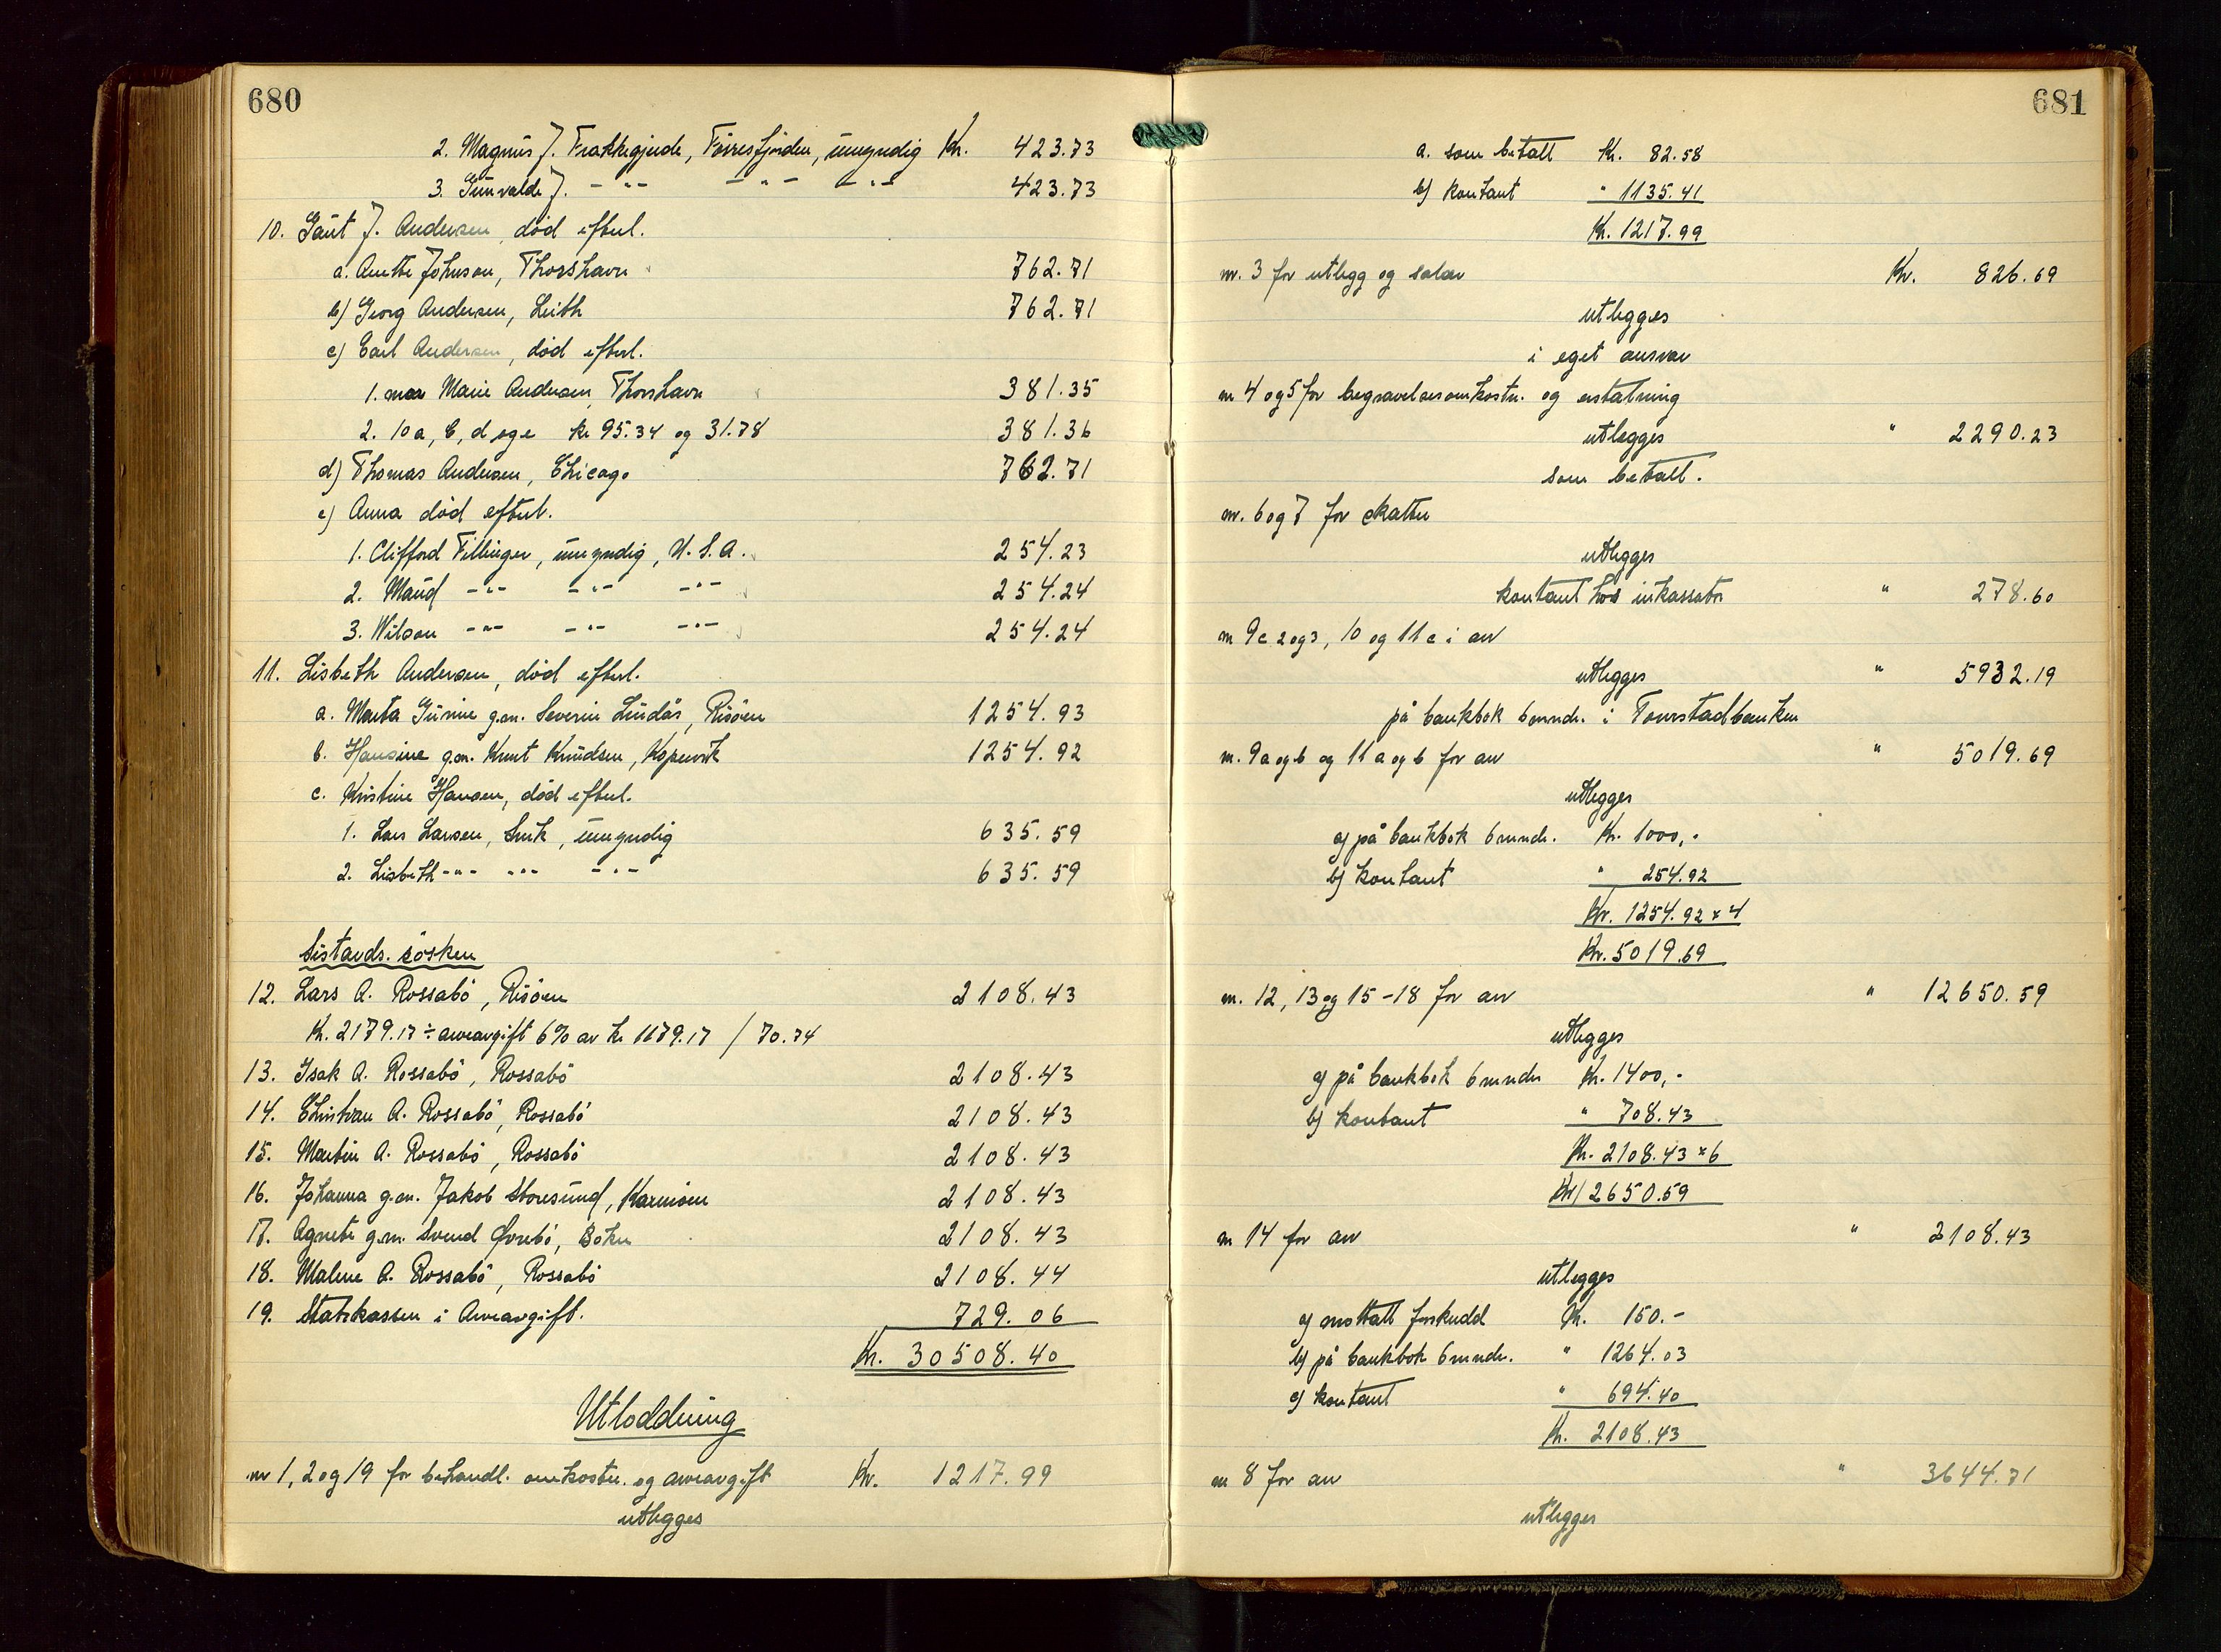 680
2. Magnus J. Frakkagjerde, Førresfjorden, umyndig Kr. 423.73
3. Gunvald J. -"- -"- -"- 423.73
10. Gaut J. Andersen, død efterl.
a. Anette Johnson, Thorshavn 762.71
b) Georg Andersen, Leith 762.71
c) Carl Andersen, død efterl.
1. mor Marie Andersen, Thorshavn 381.35
2. 10 a, b, d og e kr 95.34 og 31.78 381.36
d) Thomas Andersen, Chicago 762.71
e) Anna død efterl.
1. Clifford Fillinger, umyndig, U.S.A. 254.23
2. Maud -"- -"- -"- 254.24
3. Wilson -"- -"- -"- 254.24
11. Lisbeth Andersen, død efterl.
a. Marta Gurine g.m. Severin Lindås, Risöen 1254.93
b. Hansine g.m. Knut Knudsen, Kopervik 1254.92
c. Kristine Hansen, død efterl.
1. Lars Larsen, umyndig 635.59
2. Lisbeth -"- -"- -"- 635.59
Sistavds. søsken
12. Lars A. Rossabö, Risöen 2108.43
Kr. 2179.17 ÷ arveavgift 6% av kr 1179.17 / 70.74
13. Isak A. Rossabö, Rossabö 2108.43
14. Christian A. Rossabö, Rossabö 2108.43
15. Martin A. Rossabö, Rossabö 2108.43
16. Johanna g.m. Jakob Storesund, Karmöen 2108.43
17. Agnete g.m. Svend Øvrebö, Bokn 2108.43
18. Malene A. Rossabö, Rossabö 2108.44
19. Statskassen i Arveavgift. 729.06
Kr. 30508.40
Utloddning
nr 1, 2 og 19 for behandl. omkostn. og arveavgift Kr. 1217.99
utlegges
681
a. som betalt Kr. 82.58
b) kontant " 1135.41
Kr. 1217.99
nr. 3 for utlegg og salær Kr. 826.69
utlegges
i eget ansvar
nr 4 og 5 for begravelsesomkostn. og erstatning
utlegges " 2290.23
som betalt.
nr. 6 og 7 for skatter
utlegges
kontant hos inkassator " 278.60
nr 9c 2 og 3, 10 og 11 c i arv
utlegges " 5932.19
på bankbok 6 mndr. i
nr. 9a og b og 11 a og b for arv " 5019.69
utlegges
a) på bankbok 6 mndr. Kr. 1000,-
b) kontant " 254.92
Kr. 1254.92 x 4
Kr. 5019.69
nr. 12, 13 og 15-18 for arv " 12650.59
utlegges
a) på bankbok 6 mndr Kr. 1400,-
b) kontant " 708.43
Kr. 2108.43 x 6
Kr 12650.59
nr 14 for arv " 2108.43
utlegges
a) mottatt forskudd Kr. 150.-
b) på bankbok 6 mndr. " 1264.03
c) kontant " 694.40
Kr. 2108.43
nr 8 for arv " 3644.71
utlegges